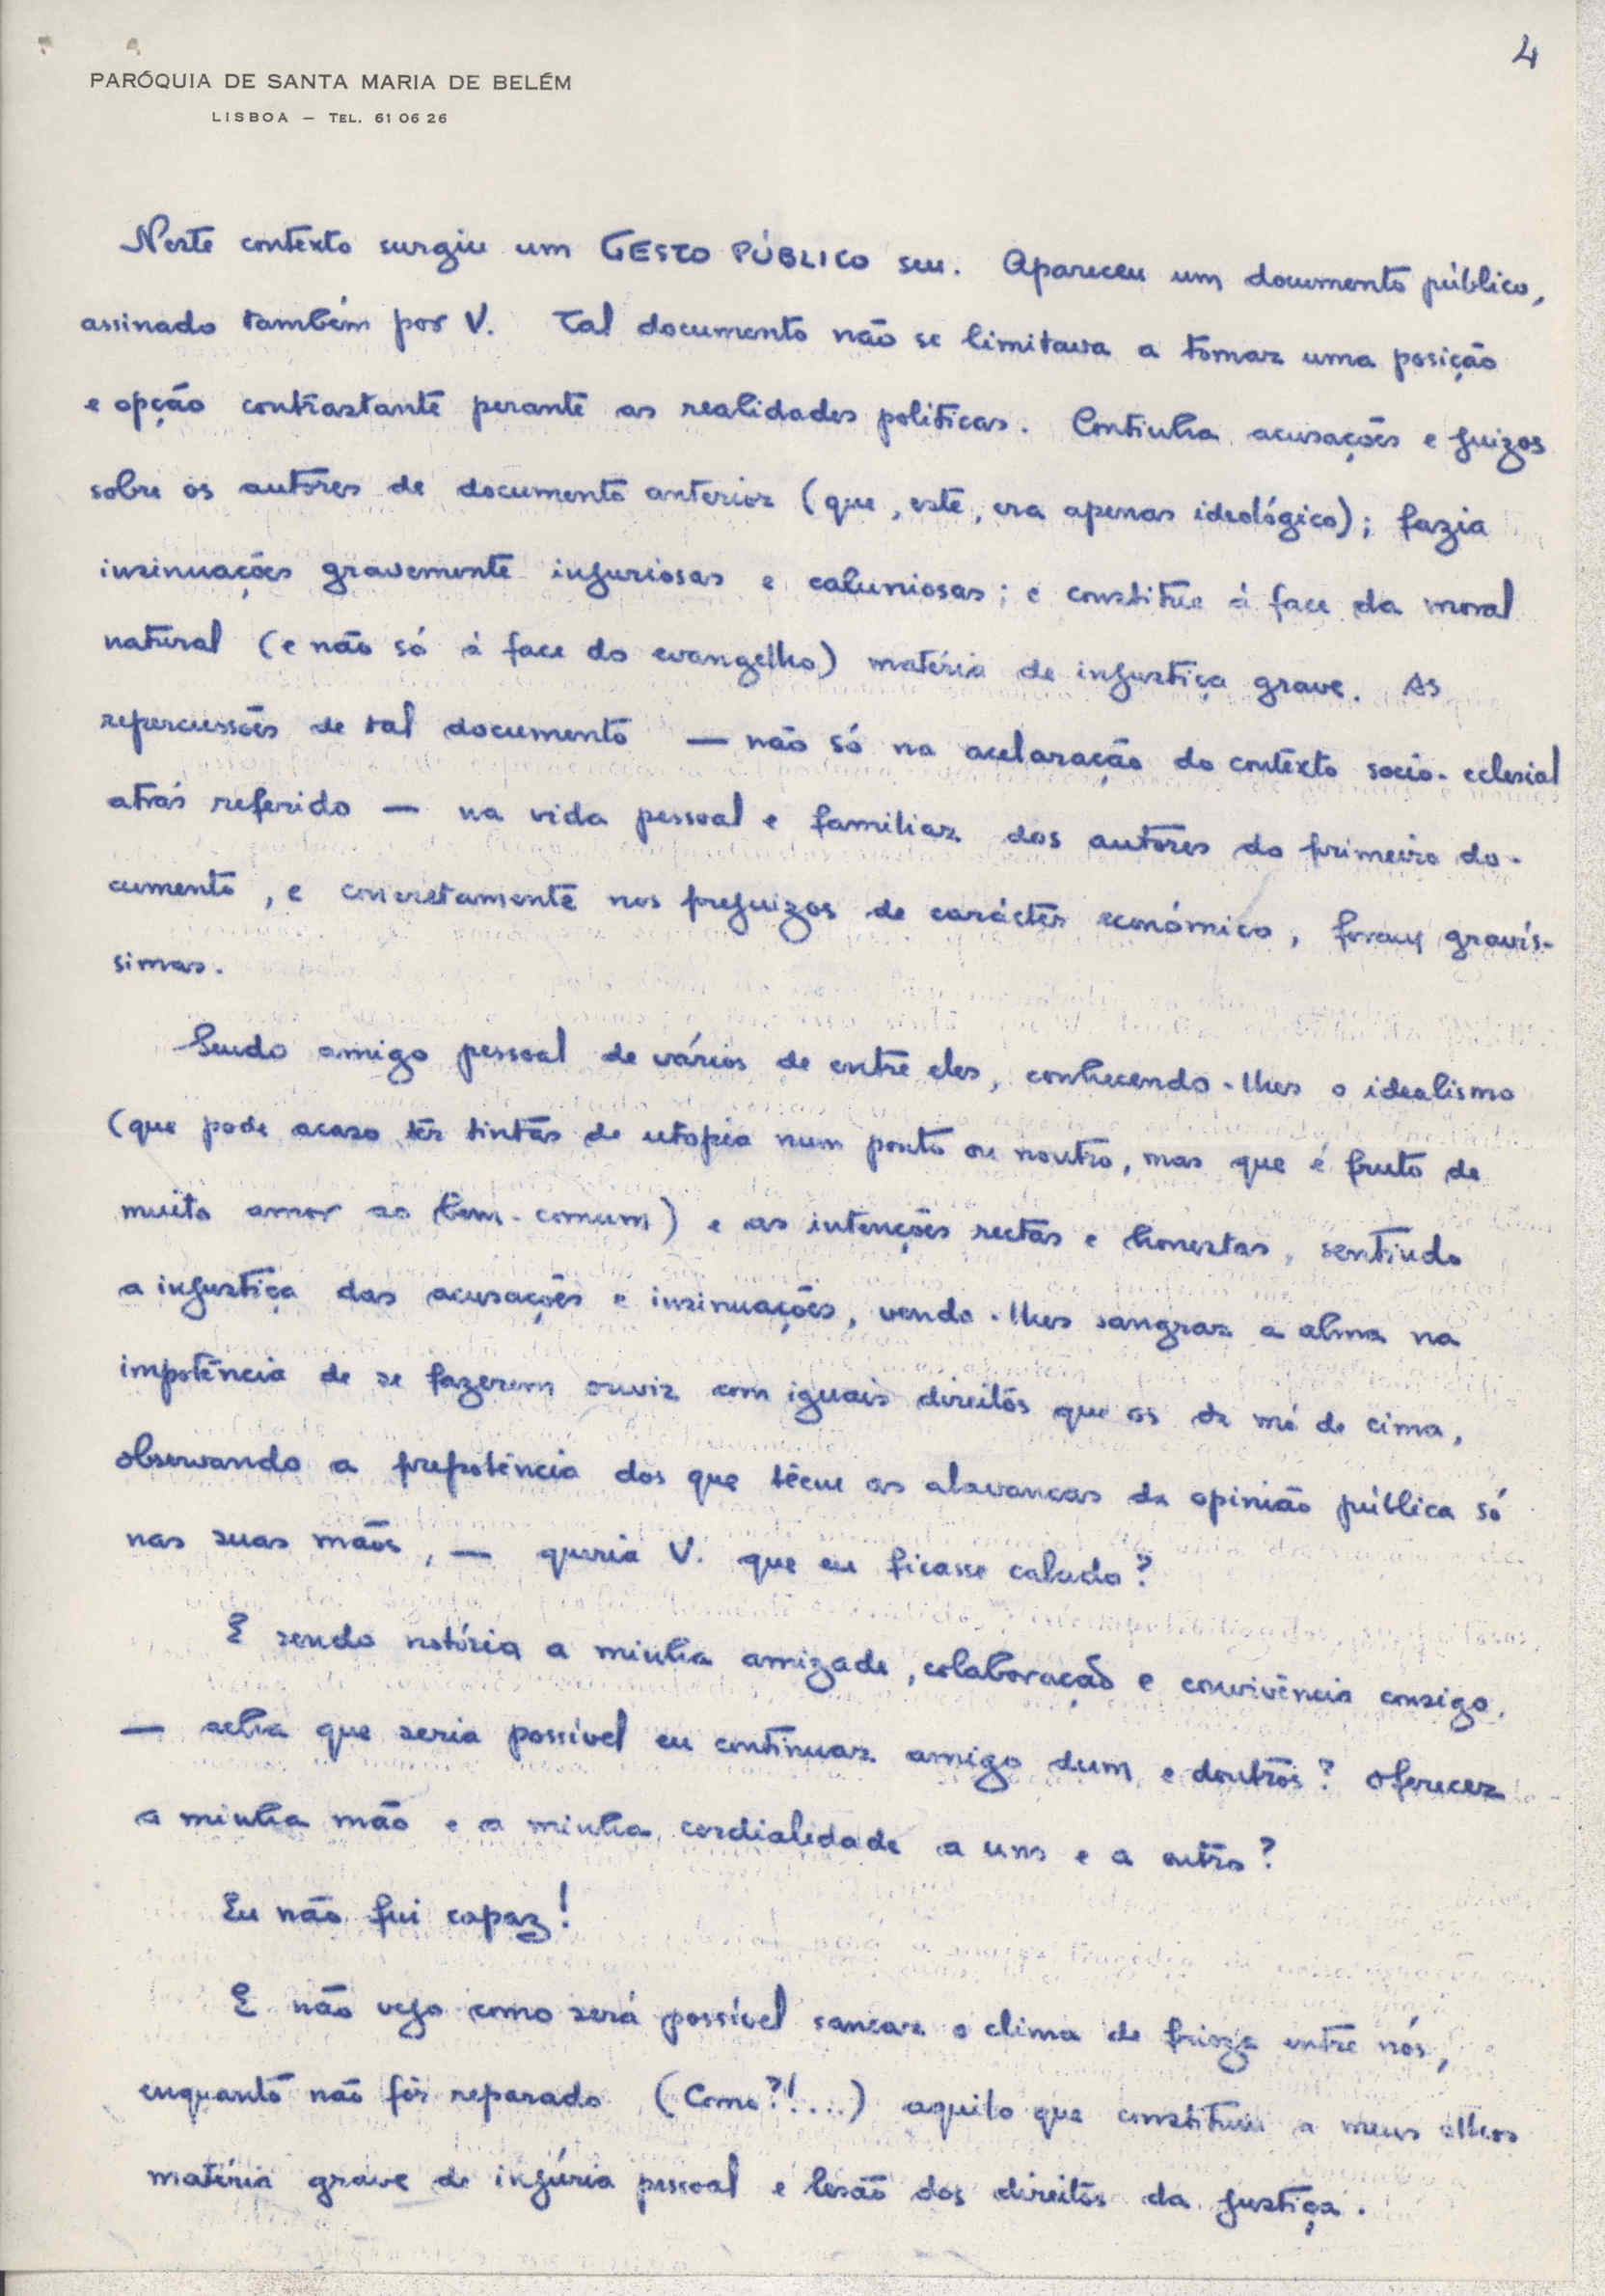 4
PARÓQUIA DE SANTA MARIA DE BELÉM
LISBOA — TEL. 61 06 26
Neste contexto surgiu um GESTO PÚBLICO seu. Apareceu um documento público,
assinado também por V. Tal documento não se limitava a tomar uma posição
e opção contrastante perante as realidades politicas. Continha acusações e juizos
sobre os autores de documento anterior (que, este, era apenas ideológico); fazia
insinuações gravemente injuriosas e caluniosas; e constitue à face da moral
natural (e não só à face do evangelho) matéria de injustiça grave. As
repercussões de tal documento — não só na aclaração do contexto socio-eclesial
atrás referido — na vida pessoal e familiar dos autores do primeiro do-
cumento, e concretamente nos prejuizos de carácter económico, foram gravís-
simas.
Sendo amigo pessoal de vários de entre eles, conhecendo-lhes o idealismo
(que pode acaso ter tintas de utopia num ponto ou noutro, mas que é fruto de
muito amor ao bem-comum) e as intenções rectas e honestas, sentindo
a injustiça das acusações e insinuações, vendo-lhes sangrar a alma na
impotência de se fazerem ouvir com iguais direitos que os da mó de cima,
observando a prepotência dos que têem as alavancas da opinião pública só
nas suas mãos, — queria V. que eu ficasse calado?
E sendo notória a minha amizade, colaboração e convivência consigo,
— acha que seria possível eu continuar amigo dum e doutros? Oferecer
a minha mão e a minha cordialidade a uns e a outro?
Eu não fui capaz!
E não vejo como será possível sanear o clima de frieza entre nós,
enquanto não fôr reparado (Como?!...) aquilo que constitui a meus olhos
matéria grave de injúria pessoal e lesão dos direitos da justiça.